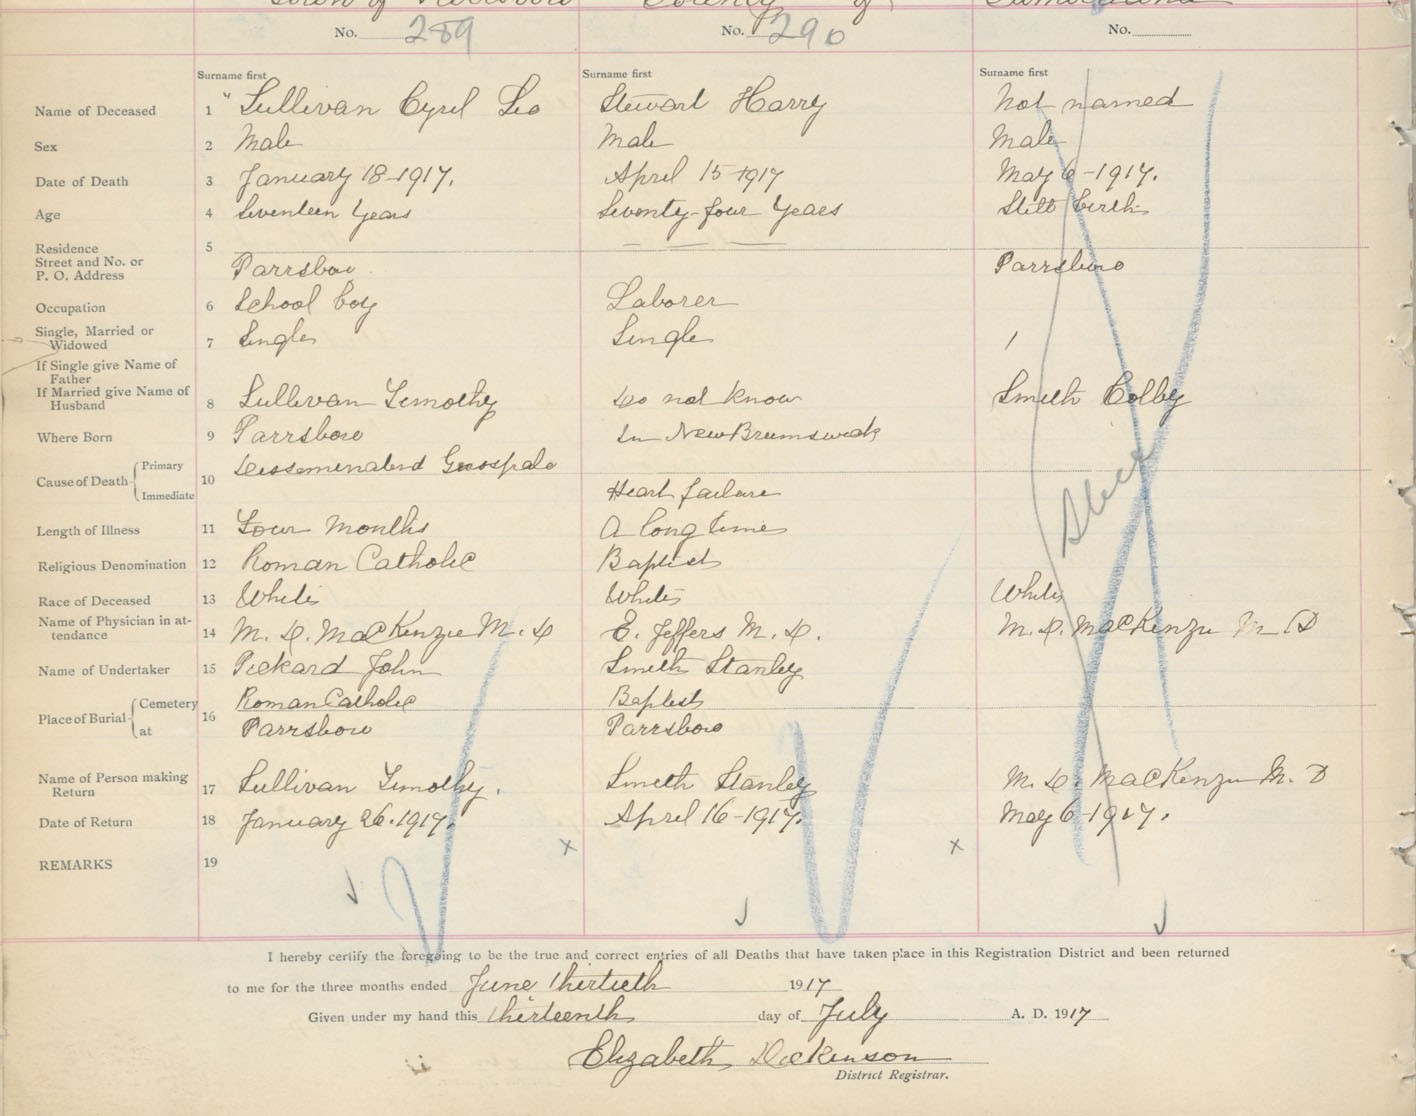 Town of Parrsboro County of Cumberland
No. 289 No. 290 No.
Surname first Surname first Surname first
Name of Deceased 1 " Sullivan Cyril Leo Stewart Harry Not named
Sex 2 Male Male Male
Date of Death 3 January 18-1917. April 15-1917 May 6-1917.
Age 4 Seventeen Years Seventy-four Years Still birth
Residence 5
Street and No. or
P. O. Address Parrsboro Parrsboro
Occupation 6 School boy Laborer
Single, Married or
Widowed 7 Single Single
If Single give Name of
Father
If Married give Name of
Husband 8 Sullivan Timothy Do not know Smith Colby
Where Born 9 Parrsboro In New Brunswick
Cause of Death Primary 10 Disseminated
Immediate Heart failure
Length of Illness 11 Four Months A long time
Religious Denomination 12 Roman Catholic Baptist
Race of Deceased 13 White White White
Name of Physician in at-
tendance 14 M. D. MacKenzie M. D E. Jeffers M. D. M. D. MacKenzie M D
Name of Undertaker 15 Pickard John Smith Stanley
Place of Burial Cemetery 16 Roman Catholic Baptist
at Parrsboro Parrsboro
Name of Person making
Return 17 Sullivan Timothy. Smith Stanley M. D. MacKenzie M. D
Date of Return 18 January 26.1917. April 16-1917. May 6-1917.
REMARKS 19 x x
I hereby certify the foregoing to be the true and correct entries of all Deaths that have taken place in this Registration District and been returned
to me for the three months ended June thirtieth 1917
Given under my hand this thirteenth day of July A. D. 1917
Elizabeth Dickinson
District Registrar.